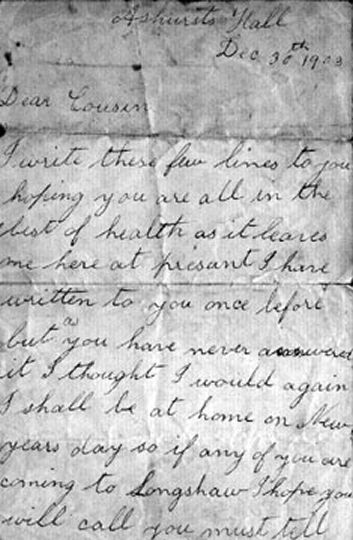 Ashursts Hall
Dec 30th 1903
Dear Cousin
I write these few lines to you
hoping you are all in the
best of health as it leaves
me here at presant I have
written to you once before
but as you have never answered
it I thought I would again
I shall be at home on New
years day so if any of you are
coming to Longshaw I hope you
will call you must tell